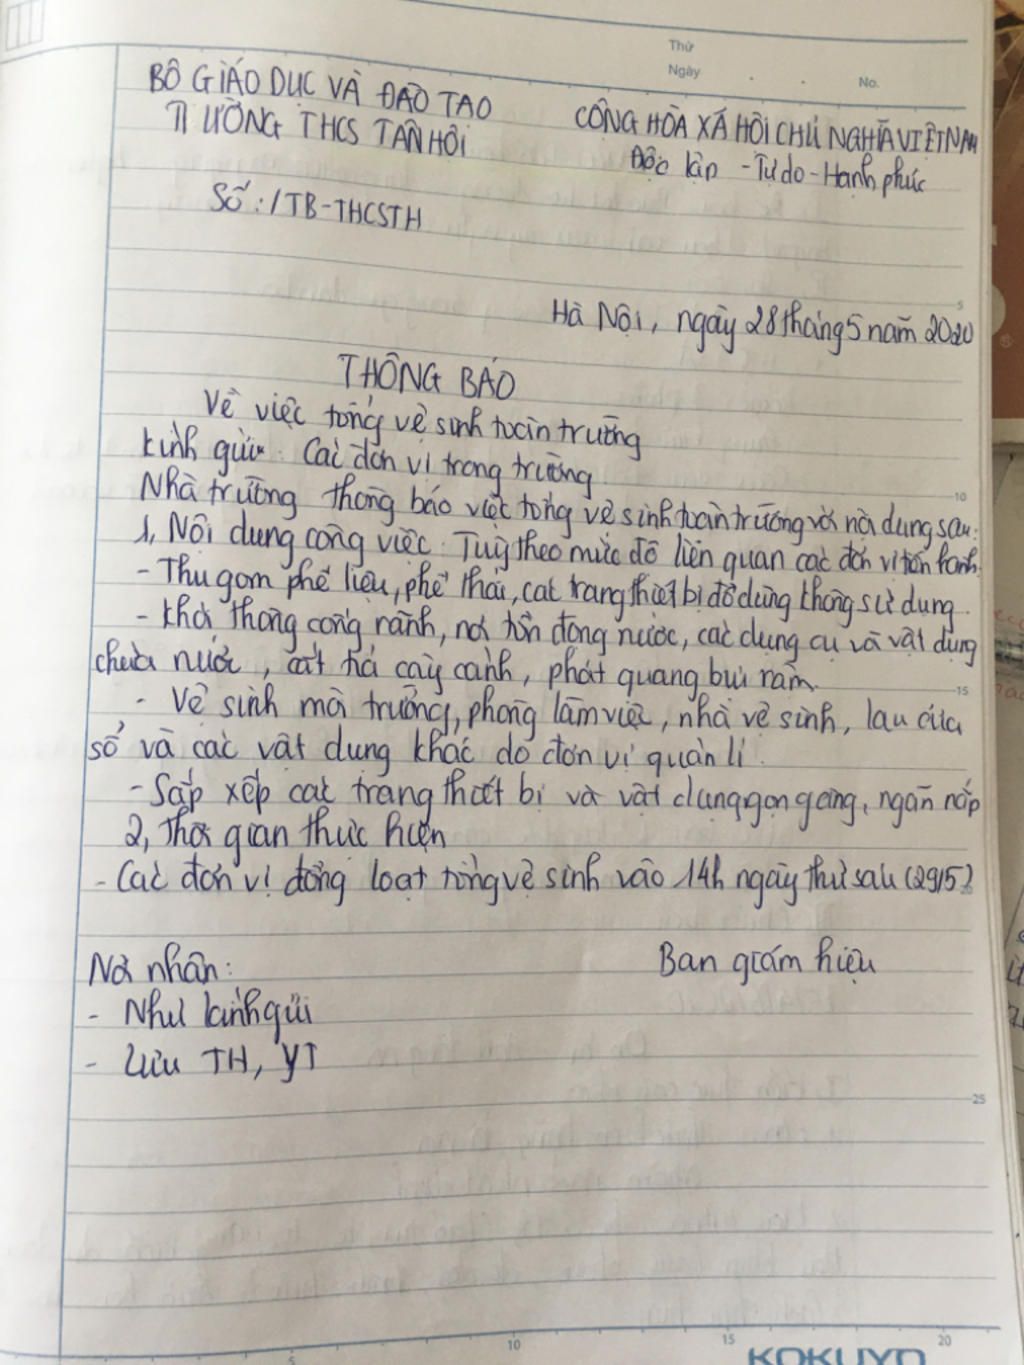 Thứ
Ngày
No.
BỘ GIÁO DỤC VÀ ĐÀO TẠO
TRƯỜNG THCS TÂN HỘI
CỘNG HÒA XÃ HỘI CHỦ NGHĨA VIỆT NAM
Độc lập - Tự do - Hạnh phúc
Số: /TB-THCSTH
Hà Nội, ngày 28 tháng 5 năm 2020
THÔNG BÁO
Về việc tổng vệ sinh toàn trường
Kính gửi: Các đơn vị trong trường
Nhà trường thông báo việc tổng vệ sinh toàn trường với nội dung sau:
1, Nội dung công việc: Tuỳ theo mức độ liên quan các đơn vị tiến hành:
- Thu gom phế liệu, phế thải, các trang thiết bị đồ dùng không sử dụng.
- Khơi thông cống rãnh, nơi tồn đọng nước, các dụng cụ và vật dụng
chứa nước, cắt tỉa cây cảnh, phát quang bụi rậm.
- Vệ sinh trường, phòng làm việc, nhà vệ sinh, lau cửa
sổ và các vật dụng khác do đơn vị quản lí.
- Sắp xếp các trang thiết bị và vật dụng gọn gàng, ngăn nắp
2, Thời gian thực hiện
- Các đơn vị đồng loạt tổng vệ sinh vào 14h ngày thứ sáu (29/5)
Nơi nhận:
Ban giám hiệu
- Như kính gửi
- Lưu TH, YT
5
10
15
25
5
10
15
20
KOKUYO